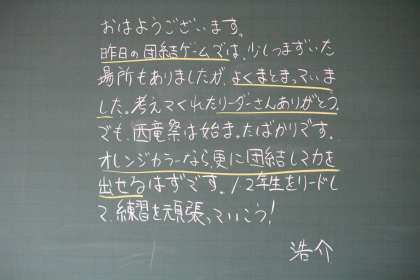 おはようございます。
昨日の団結ゲームでは、少しつまずいた
場所もありましたが、よくまとまっていま
した。考えてくれたリーダーさんありがとう。
でも、西竜祭は始まったばかりです。
オレンジカラーなら、更に団結して力を
出せるはずです。1、2年生をリードし
て、練習を頑張っていこう!
浩介